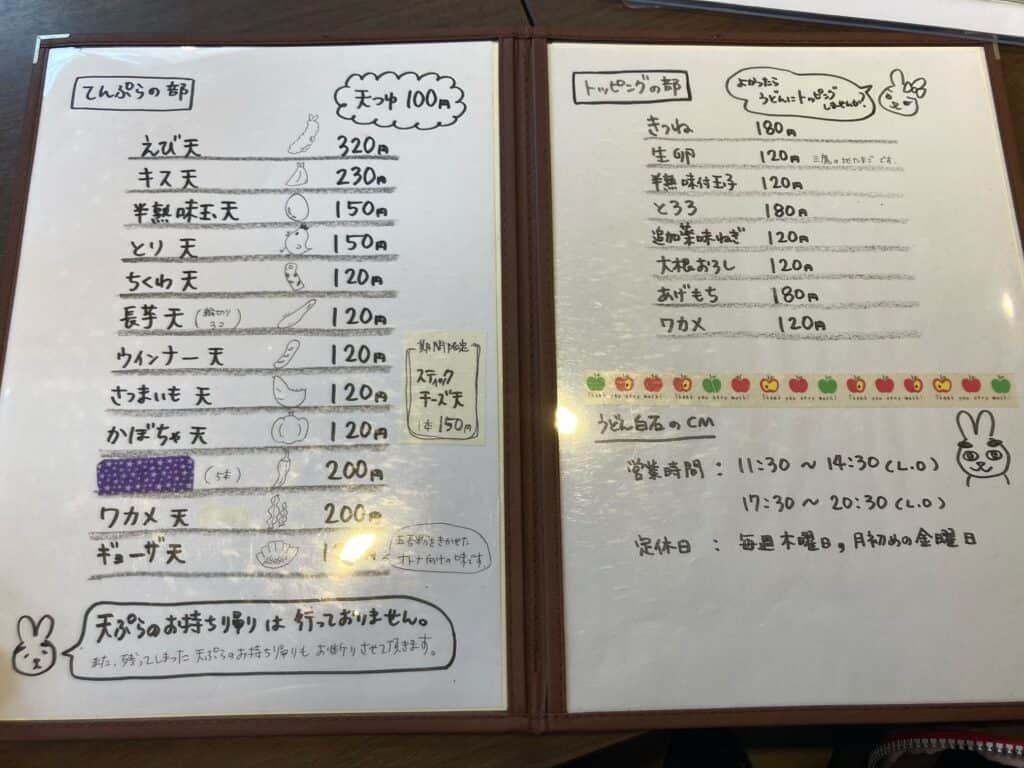 てんぷらの部
天つゆ 100円
えび天 320円
キス天 230円
半熟味玉天 150円
とり天 150円
ちくわ天 120円
長芋天 (輪切り 2コ) 120円
ウィンナー天 120円
さつまいも天 120円
かぼちゃ天 120円
(5本) 200円
ワカメ天 200円
ギョーザ天
五香粉をきかせた
オトナ向けの味です
期間限定
スティック
チーズ天
1本 150円
天ぷらのお持ち帰りは行っておりません。
また、残ってしまった天ぷらのお持ち帰りもお断りさせて頂きます。
トッピングの部
よかったら
うどんにトッピング
しませんか?
きつね 180円
生卵 120円 三鷹の地たまごです.
半熟味付玉子 120円
とろろ 180円
追加薬味ねぎ 120円
大根おろし 120円
あげもち 180円
ワカメ 120円
Thank you very much! Thank you very much! Thank you very much! Thank you very much!
うどん白石のCM
営業時間 : 11:30 〜 14:30 (L.O)
17:30 〜 20:30 (L.O)
定休日 : 毎週木曜日, 月初めの金曜日